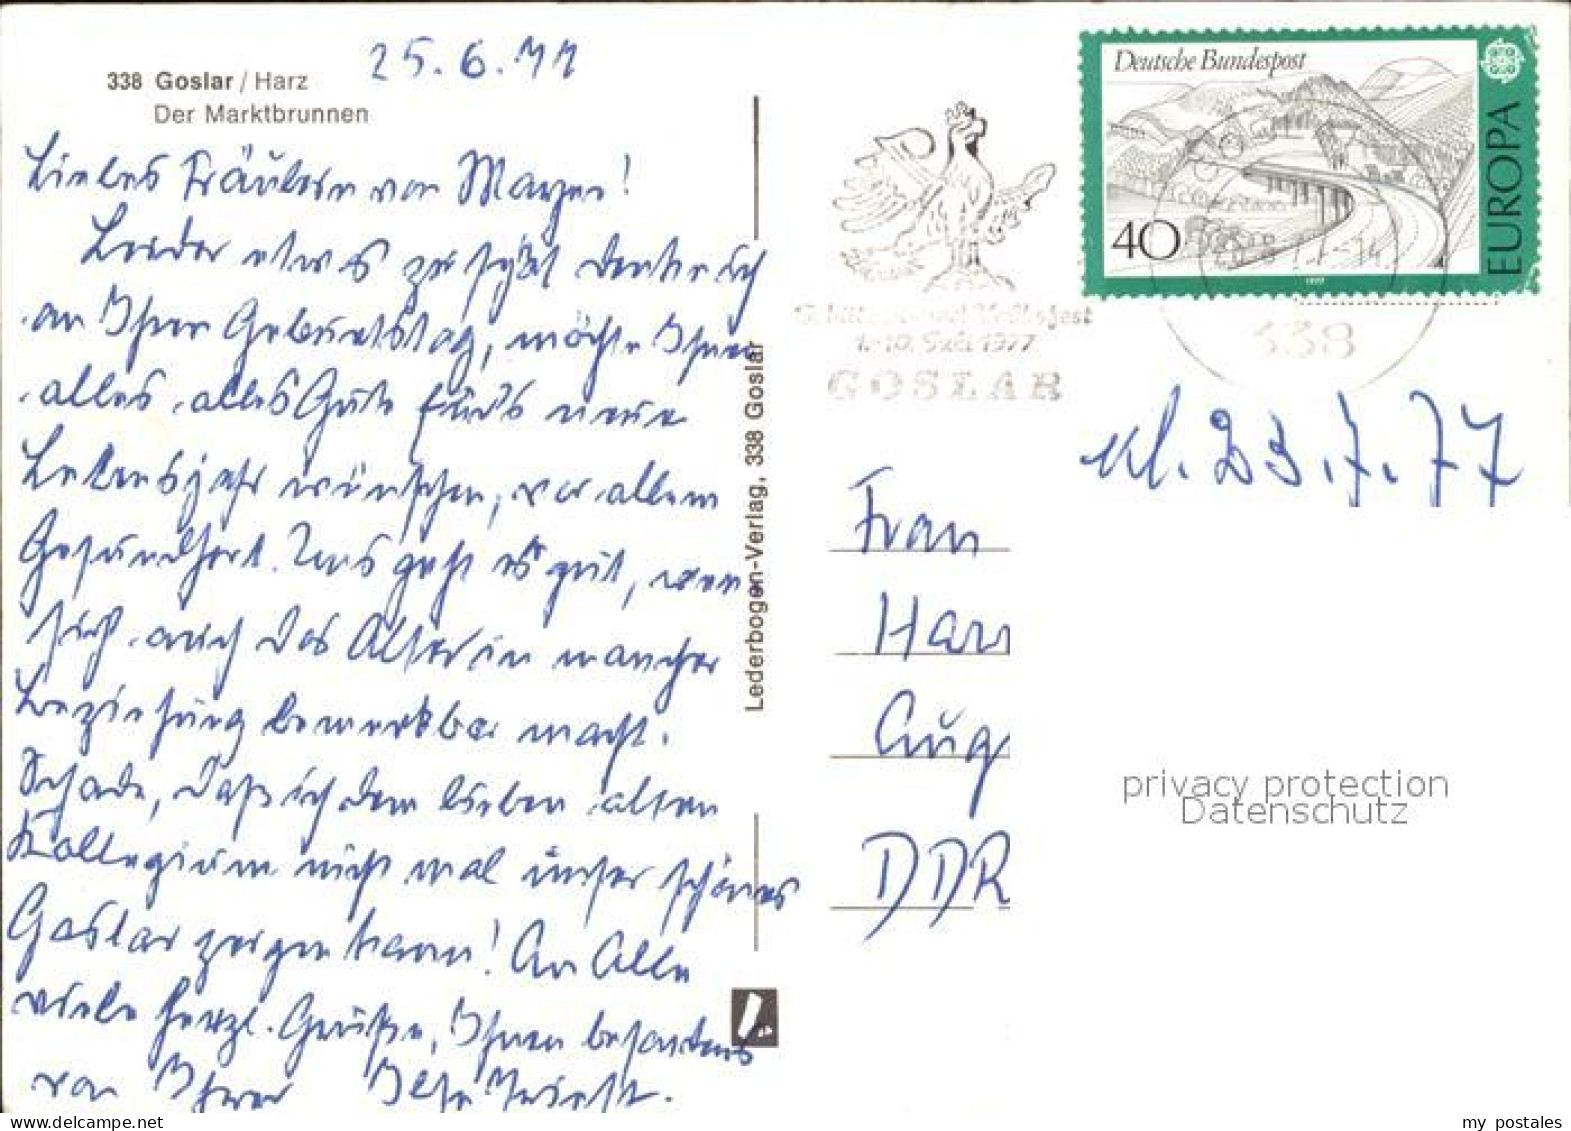 25.6.77
338 Goslar / Harz
Der Marktbrunnen
Liebes Fräulein von
Leider etwas zu spät denke ich
an Ihren Geburtstag, möchte Ihnen
alles, alles Gute für's neue
Lebensjahr wünschen, vor allem
Gesundheit. Uns geht es gut, wenn
sich auch das Alter in mancher
Beziehung bemerkbar macht.
Schade, daß ich dem lieben alten
Kollegium nicht mal unser schönes
Goslar zeigen kann! An Alle
viele herzl. Grüße, Ihnen besonders
von Ihrer Ilse
Lederbogen-Verlag, 338 Goslar
Deutsche Bundespost
40
EUROPA
1977
Schützen- und Volksfest
1.-10. Juli 1977
GOSLAR
338
23.7.77
Frau
Harr
Aug
DDR
privacy protection
Datenschutz
my postales